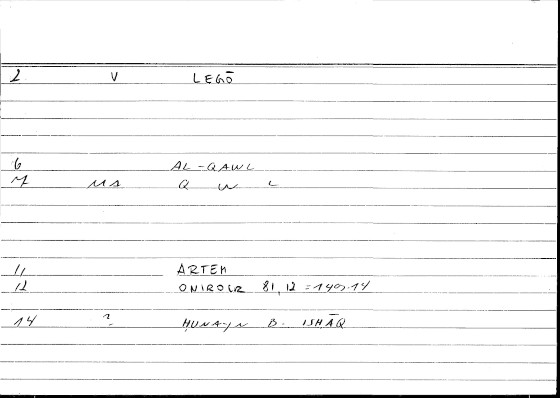 2 V LEGŌ
6 AL-QAWL
7 MA Q W L
11 ARTEM
12 ONIROCR 81,12 = 149.14
14 ? ḤUNAYN B. ISḤĀQ